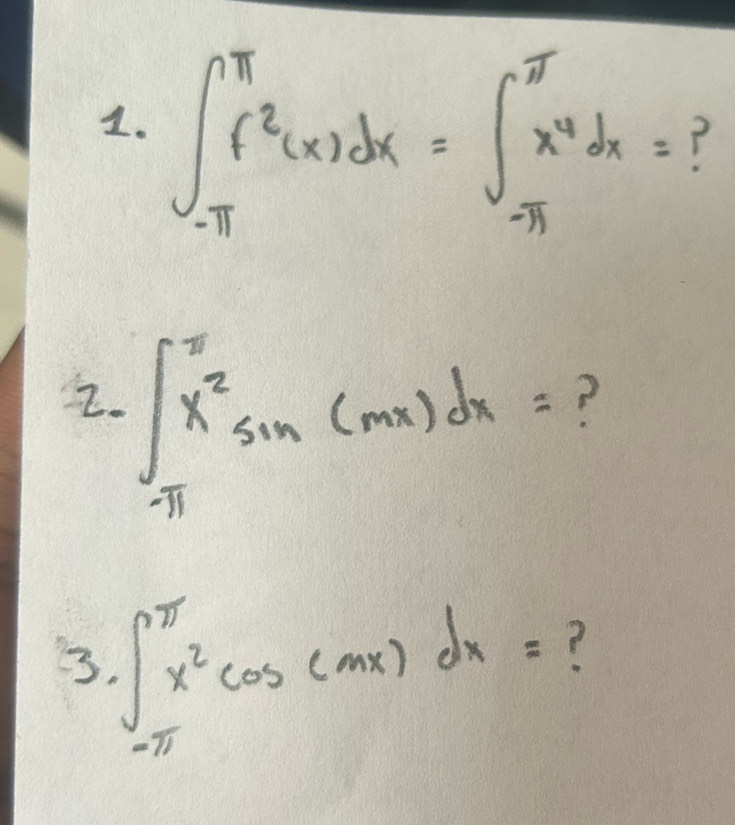 1. ∫_{-π}^{π} f²(x)dx = ∫_{-π}^{π} x⁴dx = ?
2. ∫_{-π}^{π} x² sin (mx)dx = ?
3. ∫_{-π}^{π} x² cos (mx) dx = ?